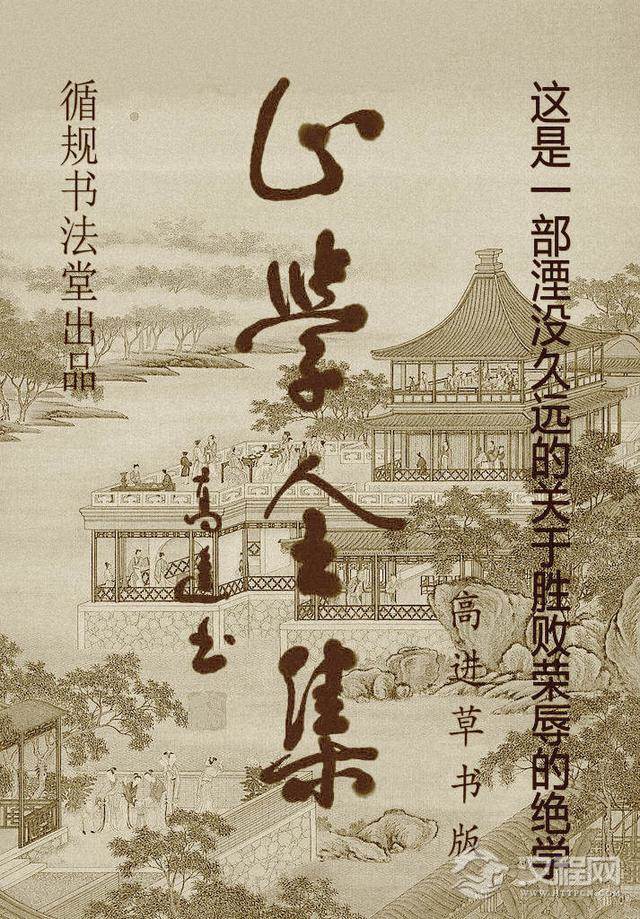 这是一部湮没久远的关于胜败荣辱的绝学
高进草书版
止学全集
高进书
循规书法堂出品
汉程网
WWW.HTTPCN.COM